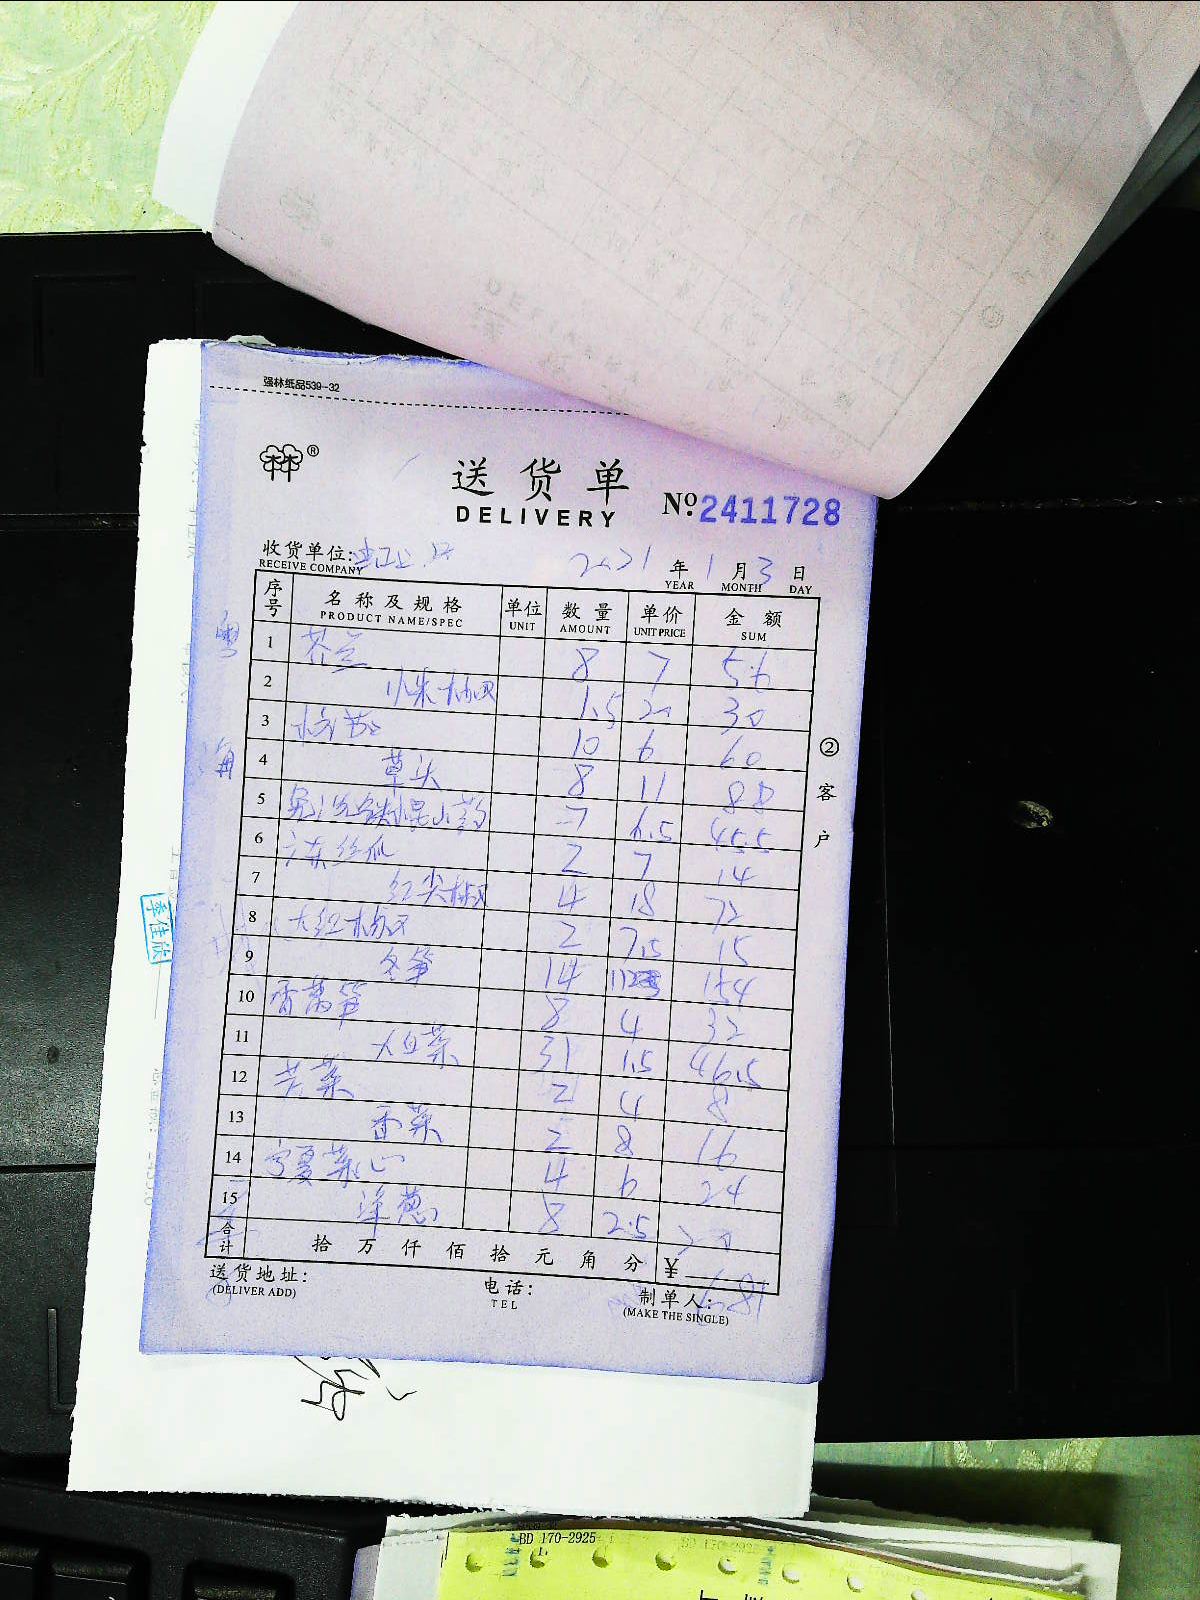 强林纸品539-32
送货单
DELIVERY
№ 2411728
收货单位:
RECEIVE COMPANY
2021 年 1 月 3 日
YEAR MONTH DAY
序号 名称及规格 单位 数量 单价 金额
PRODUCT NAME/SPEC UNIT AMOUNT UNIT PRICE SUM
1 芥兰 8 7 56
2 小米椒 1.5 20 30
3 10 6 60
4 草头 8 11 88
5 7 6.5 45.5
6 丝瓜 2 7 14
7 红尖椒 4 18 72
8 大红椒 2 7.5 15
9 冬笋 14 11 154
10 香莴笋 8 4 32
11 大白菜 31 1.5 46.5
12 2 4 8
13 香菜 2 8 16
14 宁夏菜心 4 6 24
15 洋葱 8 2.5 20
合计 拾 万 仟 佰 拾 元 角 分 ¥
681
送货地址:
(DELIVER ADD)
电话:
TEL
制单人:
(MAKE THE SINGLE)
②客户
粤
海
李佳欣
BD 170-2925